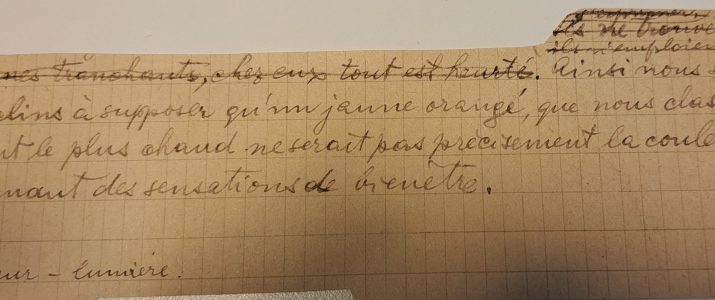 s'exprimer,
ils ne trouve
ils n'emploien
nes tranchants, chez eux tout est heurté. Ainsi nous s
clins à supposer qu'un jaune orangé, que nous clas
nt le plus chaud ne serait pas précisement la coule
nant des sensations de bienêtre.
eur - lumière.